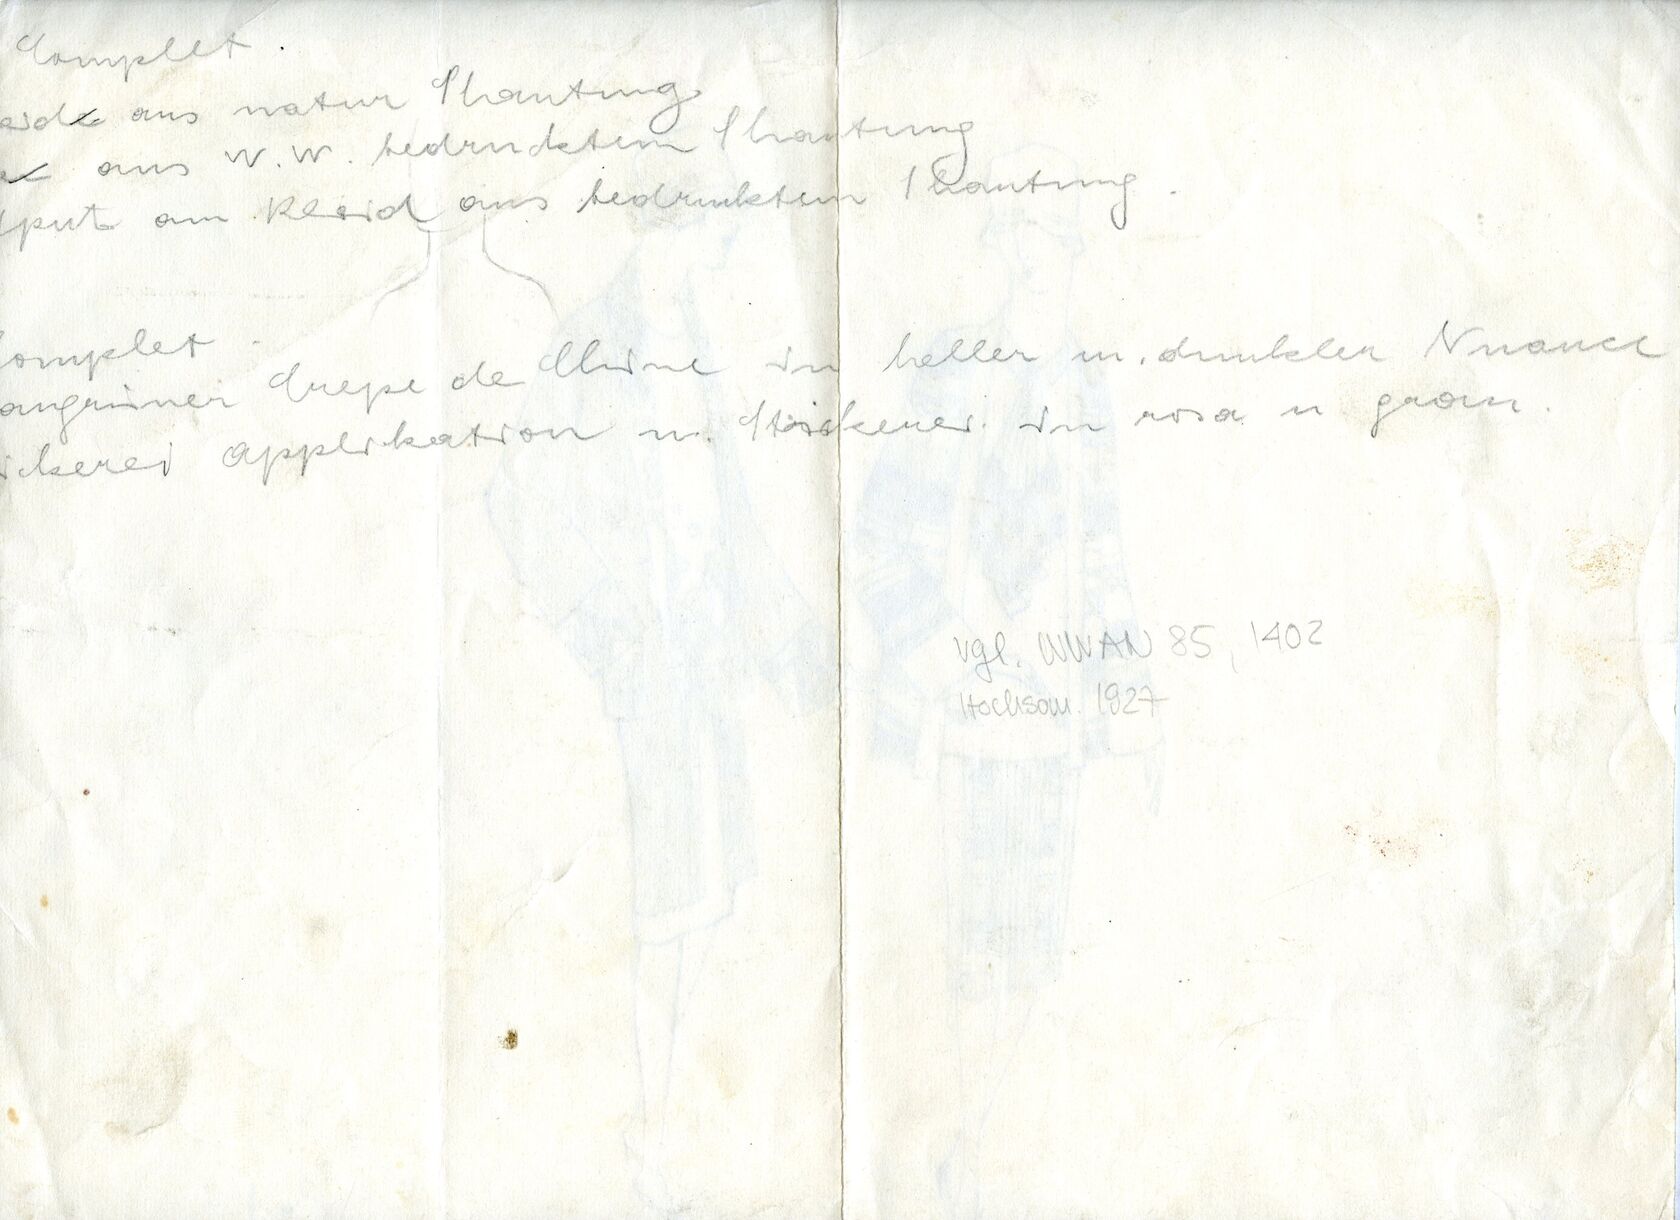 Complet.
eide aus natur Shantung
aus W.W. bedrucktem Shantung
putz am Kleid aus bedrucktem Shantung.
omplet.
angrüner Crepe de Chine in heller u. dunkler Nuance
ickerei Applikation u. Stickerei in rosa u grau.
vgl. WWAN 85, 1402
Hochsom. 1927